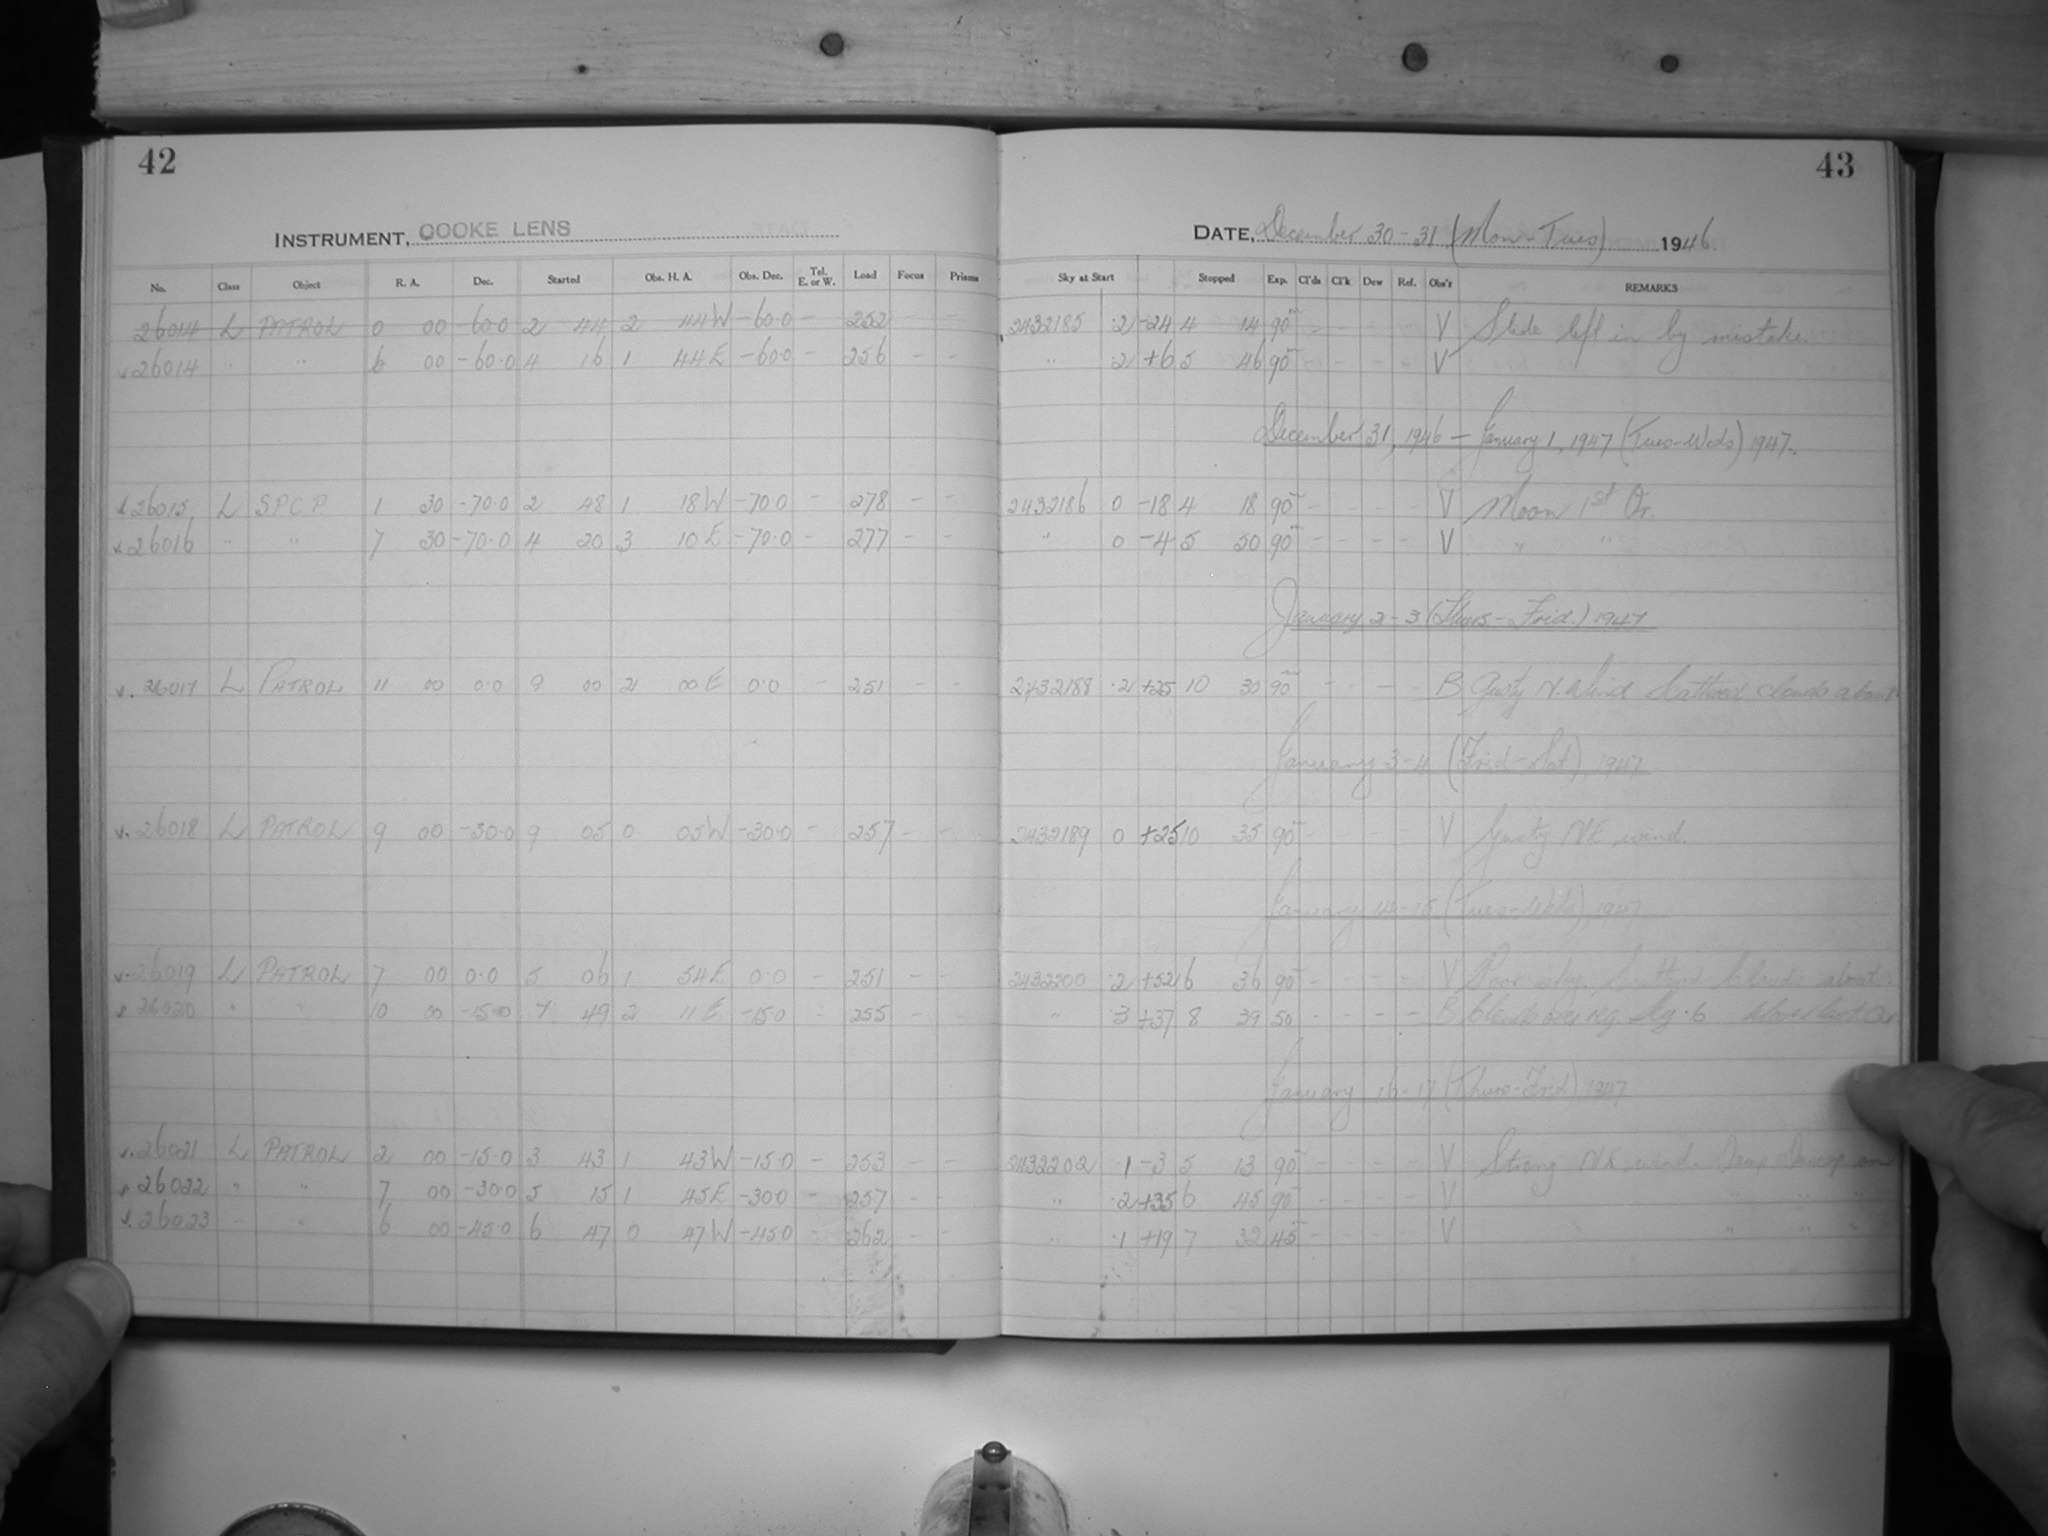 42
43
INSTRUMENT, COOKE LENS
DATE, December 30-31 (Mon-Tues) 1946
No. Class Object R. A. Dec. Started Obs. H. A. Obs. Dec. Tel. E. or W. Load Focus Prisms Sky at Start Stopped Exp. Cl'ds Cl'k Dew Ref. Obs'r REMARKS
26014 L PATROL 0 00 -60.0 2 44 2 44W -60.0 - 252 - - 2432185 .2 -24 4 14 90m - - - - V Slide left in by mistake.
v 26014 " " 6 00 -60.0 4 16 1 44E -60.0 - 256 - - " .2 +6 5 46 90m - - - - V
December 31, 1946 - January 1, 1947 (Tues-Weds) 1947.
26015 L S.P.C.P. 1 30 -70.0 2 48 1 18W -70.0 - 278 - - 2432186 0 -18 4 18 90m - - - - V Moon 1st Qr.
26016 " " 7 30 -70.0 4 20 3 10E -70.0 - 277 - - " 0 -4 5 50 90m - - - - V " "
January 2-3 (Thurs.-Frid.) 1947
v. 26017 L PATROL 11 00 0.0 9 00 2 00E 0.0 - 251 - - 2432188 .2 +25 10 30 90m - - - - B Gusty N. Wind Scattered clouds about
January 3-4 (Frid-Sat), 1947
v. 26018 L PATROL 9 00 -30.0 9 05 0 05W -30.0 - 257 - - 2432189 0 +25 10 35 90m - - - - V Gusty NE wind.
January 14-15 (Tues-Weds), 1947
v. 26019 L PATROL 7 00 0.0 5 06 1 54E 0.0 - 251 - - 2432200 .2 +52 6 36 90m - - - - V Poor sky. Scattered clouds about.
26020 " " 10 00 -15.0 7 49 2 11E -15.0 - 255 - - " .3 +37 8 39 50 - - - - B Clouds over reg. Sky .6 Moon last Qr
January 16-17 (Thurs-Frid) 1947
v. 26021 L PATROL 2 00 -15.0 3 43 1 43W -15.0 - 253 - - 2432202 .1 -3 5 13 90m - - - - V Strong NE wind. Damp on
26022 " " 7 00 -30.0 5 15 1 45E -30.0 - 257 - - " .2 +35 6 45 90m - - - - V " " "
26023 " " 6 00 -45.0 6 47 0 47W -45.0 - 262 - - " .1 +19 7 32 45m - - - - V " " "